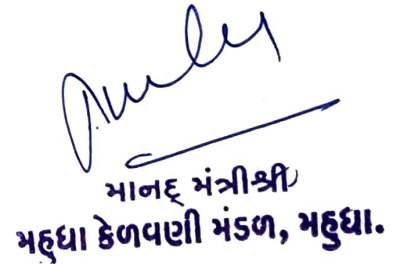 માનદ્ મંત્રીશ્રી
મહુધા કેળવણી મંડળ, મહુધા.